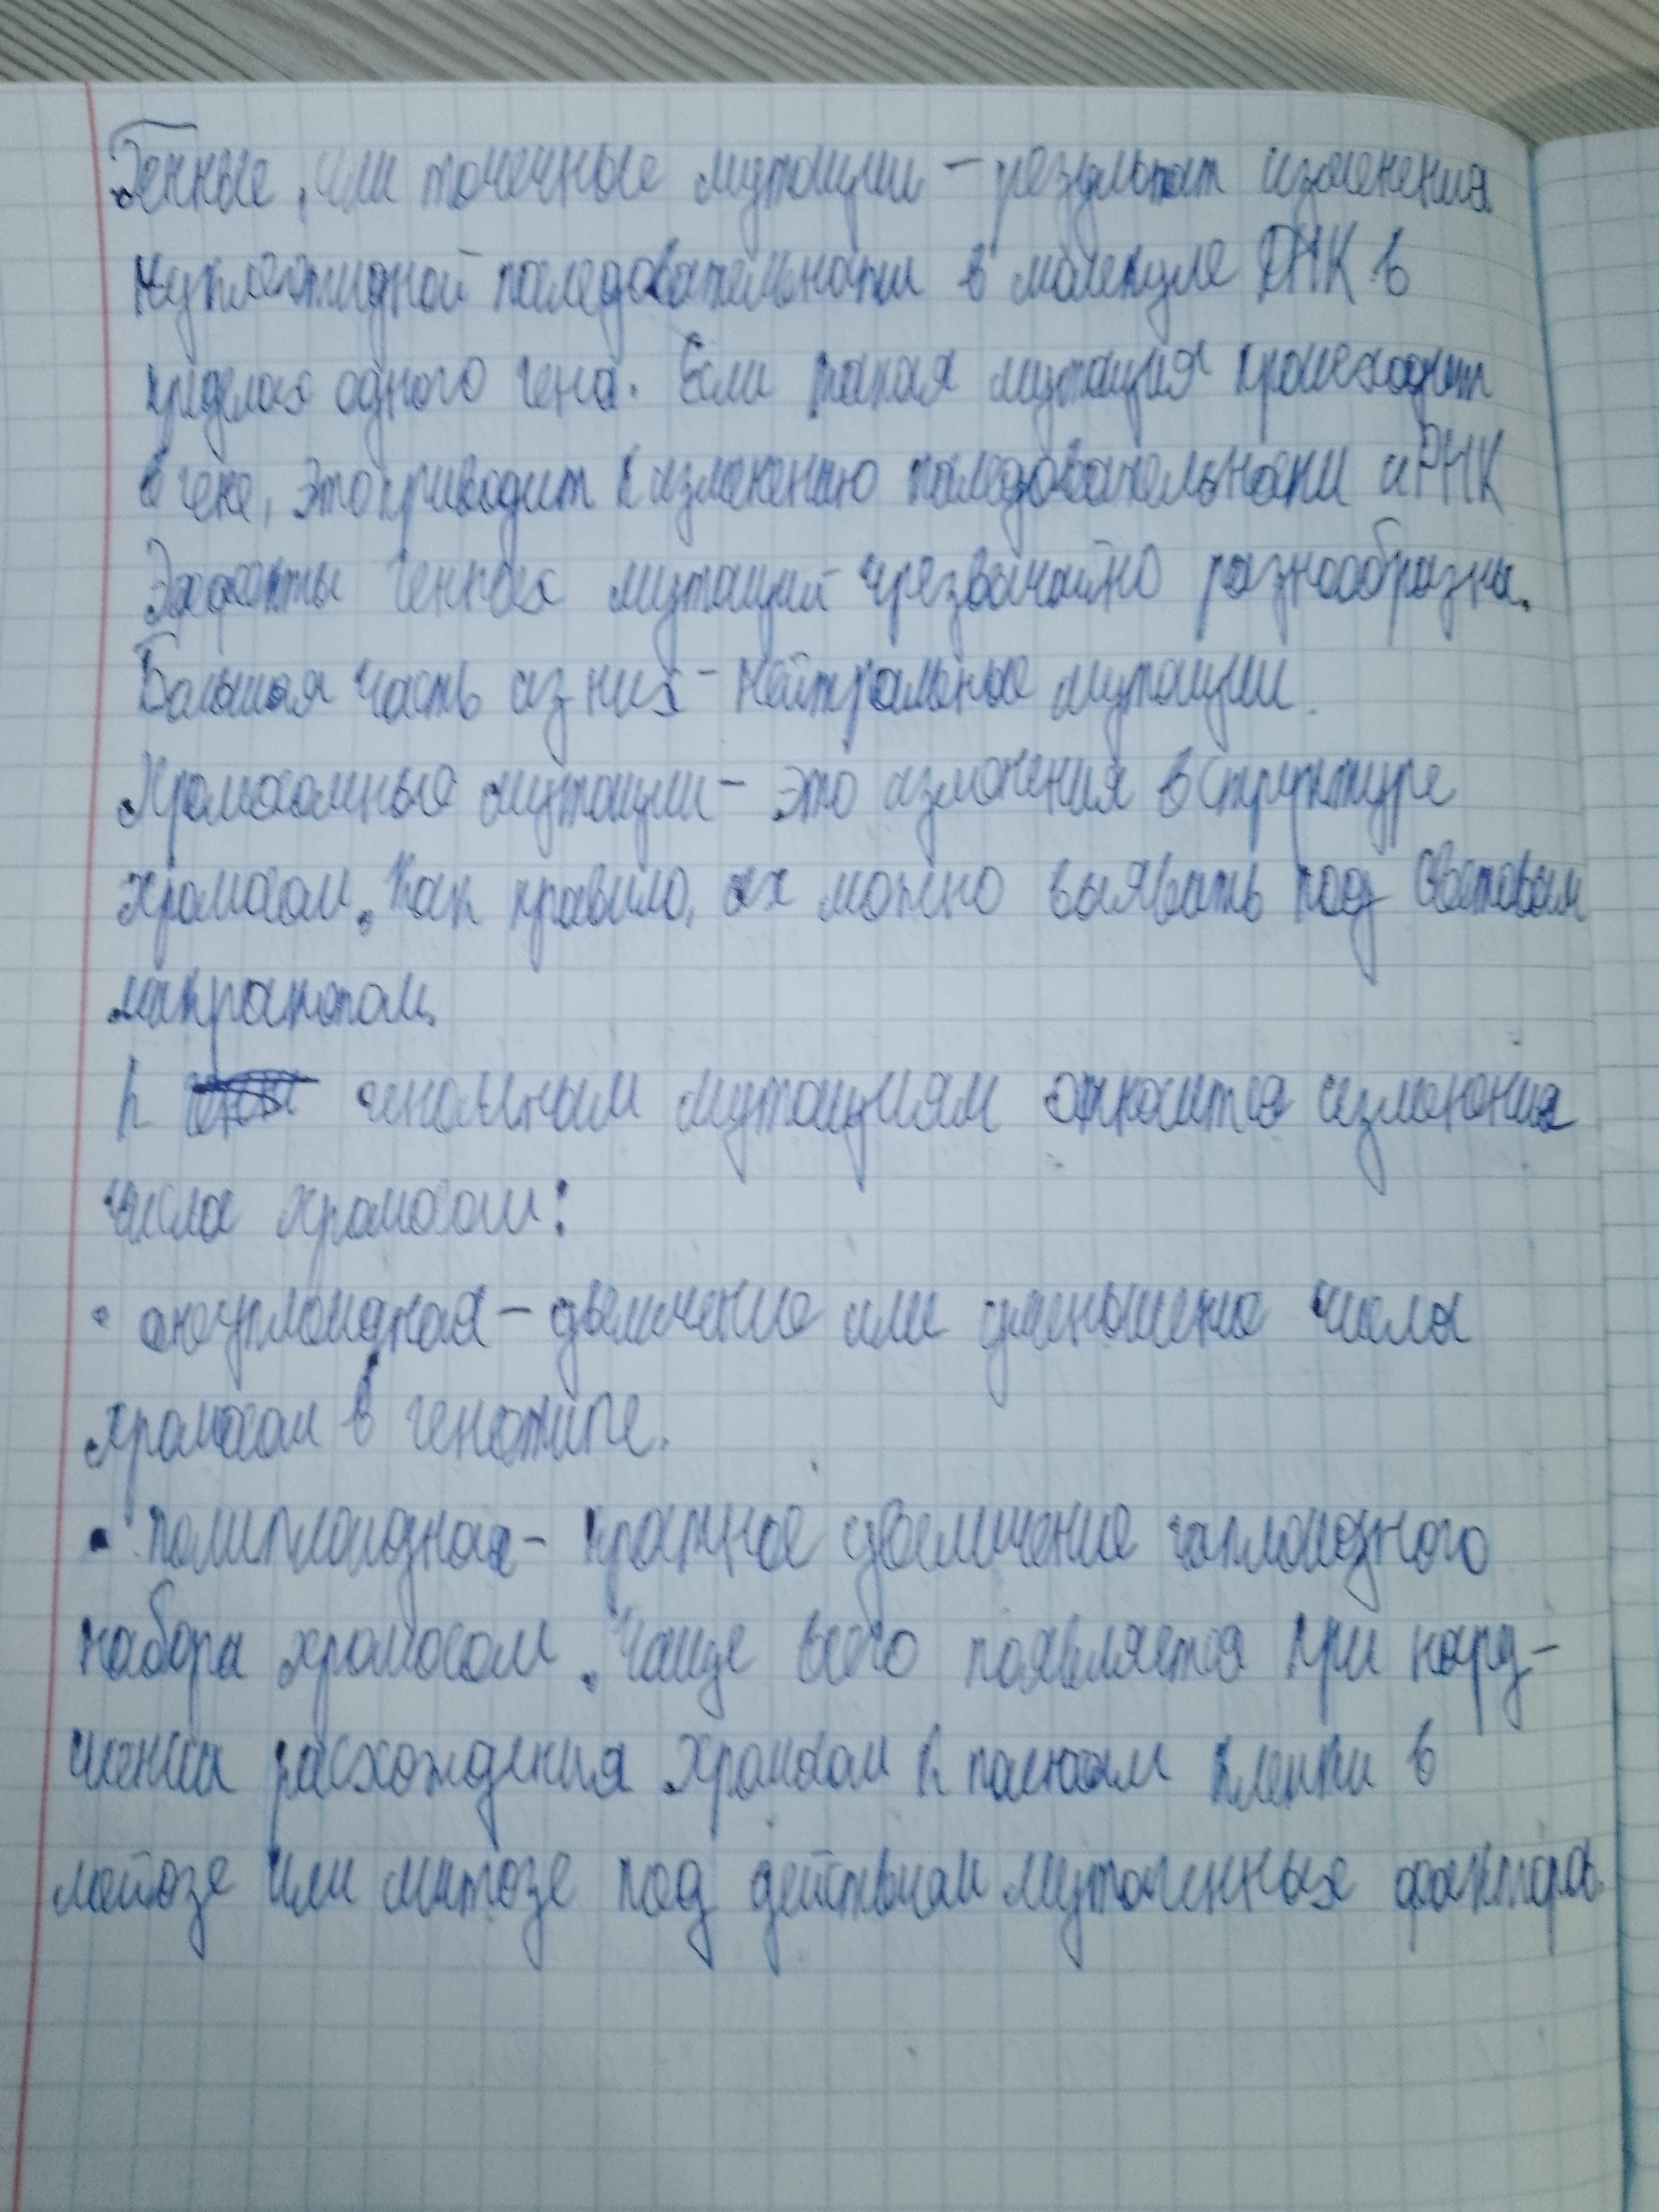 Генные, или точечные мутации – результат изменения
нуклеотидной последовательности в молекуле ДНК в
пределах одного гена. Если такая мутация происходит
в гене, это приводит к изменению последовательности иРНК
Эффекты генных мутаций чрезвычайно разнообразны.
Большая часть из них – нейтральные мутации.
Хромосомные мутации – это изменения в структуре
хромосом. Как правило, их можно выявать под световым
микроскопом.
К геномным мутациям относится изменения
числа хромосом:
• анеуплоидная – увеличение или уменьшение числа
хромосом в генотипе.
• полиплоидная – кратное увеличение гаплоидного
набора хромосом. Чаще всего появляется при нару-
шении расхождения хромосом к полюсам клетки в
мейозе или митозе под действием мутагенных фактора